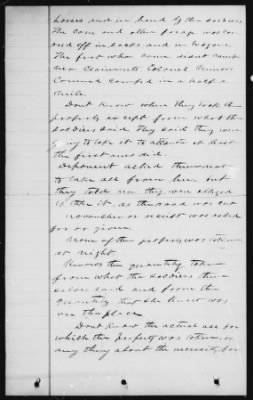 horses and in hand by the soldiers
The Corn and other forage was car
ried off in sacks and in wagons
The first who came didn't camp
near Claimants Colonel Minors
Command camped in a half a
mile.
Dont know where they took the
property except from what the
soldiers said They said they were
going to take it to Atlanta at least
the first ones did.
Deponent asked them not
to take all from her but
they told her they were obliged
to take it, as the road was cut
no voucher or receipt was asked
for or given
None of the property was taken
at night
Knows the quantity taken
from what the soldiers them
selves said and from the
quantity that she knew was
on the place
Dont Know the actual use for
which the property was taken, or
any thing about the necessity for